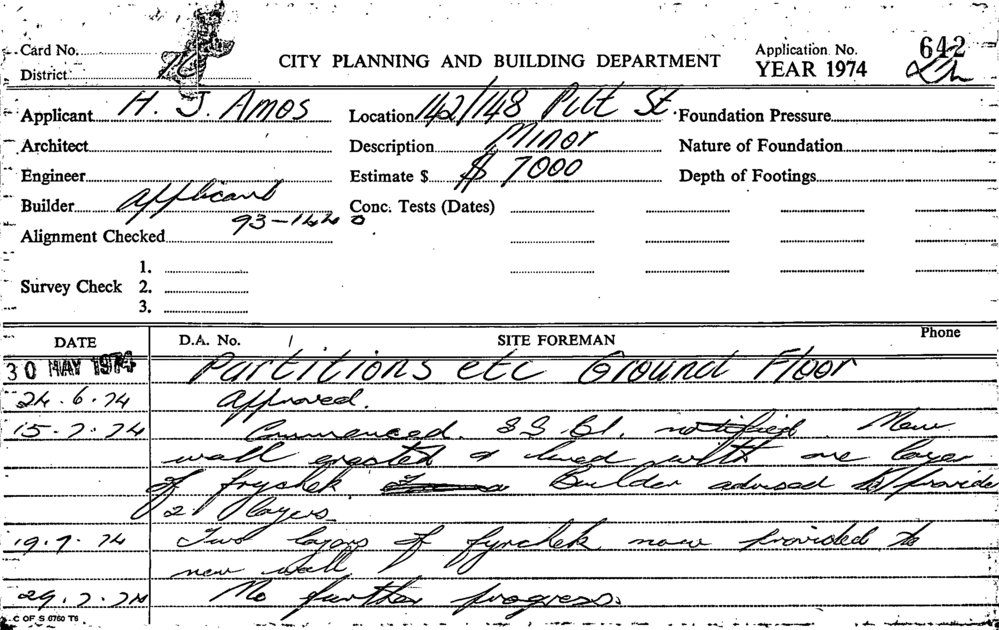 Card No.
CITY PLANNING AND BUILDING DEPARTMENT
Application No. 642
District
YEAR 1974
Applicant H. J. Amos Location 142/148 Pitt St. Foundation Pressure
Architect Description Minor Nature of Foundation
Engineer Estimate $ $ 7000 Depth of Footings
Builder applicant Conc. Tests (Dates)
93-1440
Alignment Checked
1.
Survey Check 2.
3.
DATE D.A. No. SITE FOREMAN Phone
30 MAY 1974 Partitions etc Ground Floor
24.6.74 Approved.
15.7.74 Commenced. notified. New
wall erected & lined with one layer
of frychek Builder advised to provide
2 layers.
19.7.74 Two layers of fyrchek now provided to
new wall.
29.7.74 No further progress.
C OF S 0760 T6